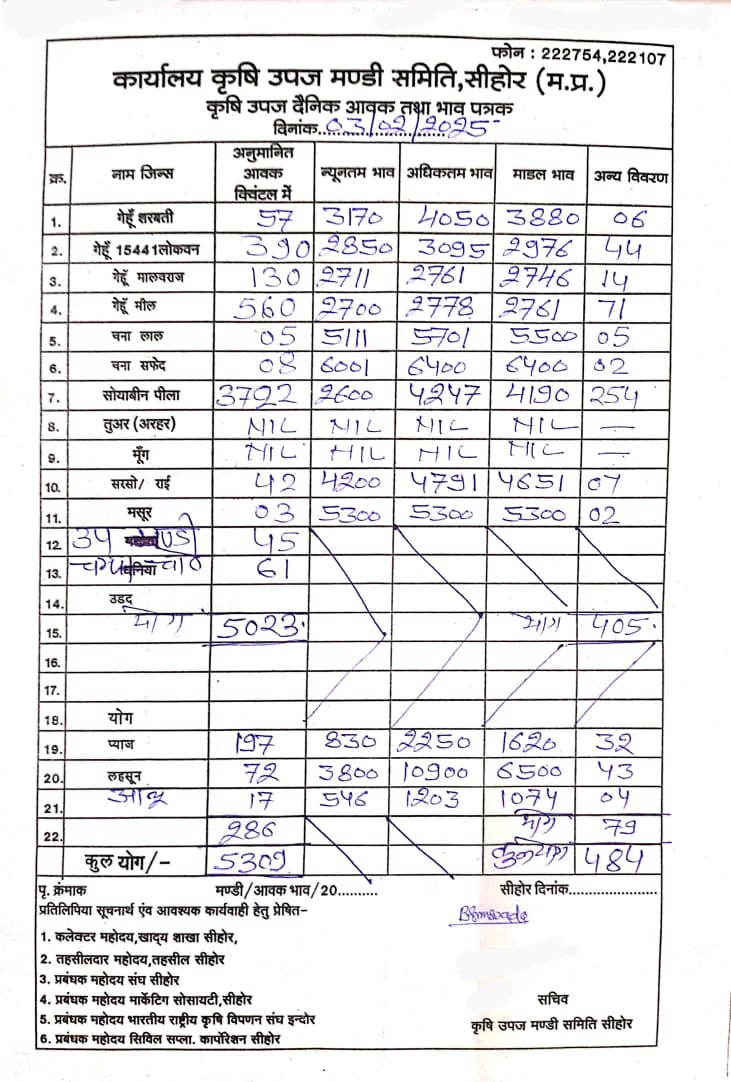 फोन : 222754,222107
कार्यालय कृषि उपज मण्डी समिति,सीहोर (म.प्र.)
कृषि उपज दैनिक आवक तथा भाव पत्रक
दिनांक...03/02/2025
क्र. नाम जिन्स अनुमानित आवक क्विंटल में न्यूनतम भाव अधिकतम भाव माडल भाव अन्य विवरण
1. गेहूँ शरबती 57 3170 4050 3880 06
2. गेहूँ 15441लोकवन 390 2850 3095 2976 44
3. गेहूँ मालवराज 130 2711 2761 2746 14
4. गेहूँ मील 560 2700 2778 2761 71
5. चना लाल 05 5111 5701 5500 05
6. चना सफेद 08 6001 6400 6400 02
7. सोयाबीन पीला 3722 2600 4247 4190 254
8. तुअर (अरहर) NIL NIL NIL NIL —
9. मूँग NIL NIL NIL NIL —
10. सरसो/ राई 42 4200 4791 4651 07
11. मसूर 03 5300 5300 5300 02
12. 45
13. धनिया 61
14. उड़द
15. योग 5023 योग 405
16.
17.
18. योग
19. प्याज 197 830 2250 1620 32
20. लहसून 72 3800 10900 6500 43
21. आलू 17 546 1203 1074 04
22. 286 योग 79
कुल योग/- 5309 कुलयोग 484
पृ. क्रंमाक मण्डी/आवक भाव/20.......... सीहोर दिनांक......................
प्रतिलिपिया सूचनार्थ एंव आवश्यक कार्यवाही हेतु प्रेषित-
1. कलेक्टर महोदय,खाद्य शाखा सीहोर,
2. तहसीलदार महोदय,तहसील सीहोर
3. प्रबंधक महोदय संघ सीहोर
4. प्रबंधक महोदय मार्केटिग सोसायटी,सीहोर सचिव
5. प्रबंधक महोदय भारतीय राष्ट्रीय कृषि विपणन संघ इन्दोर कृषि उपज मण्डी समिति सीहोर
6. प्रबंधक महोदय सिविल सप्ला. कार्पोरेशन सीहोर